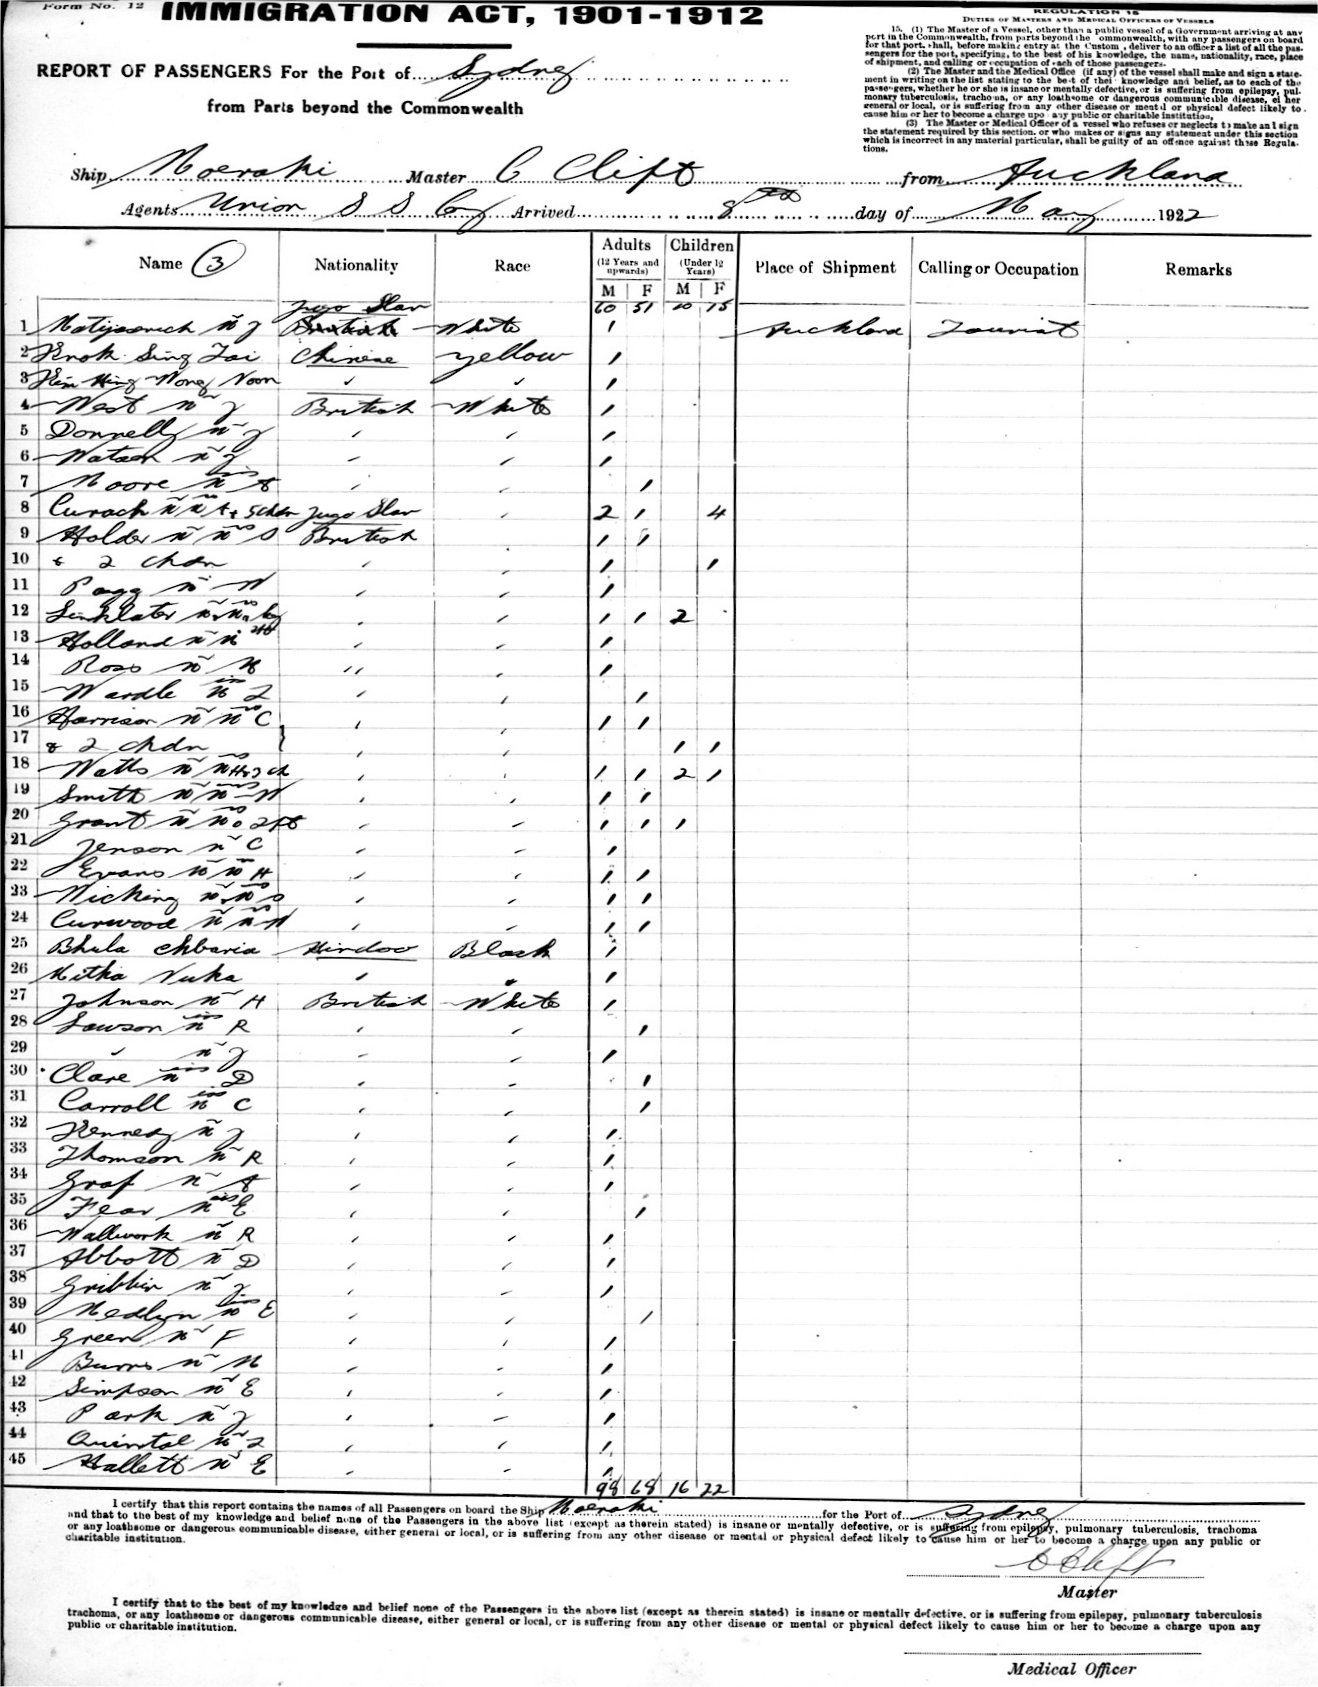 Form No. 12
IMMIGRATION ACT, 1901-1912
REPORT OF PASSENGERS For the Port of Sydney
from Parts beyond the Commonwealth
REGULATION 15
DUTIES OF MASTERS AND MEDICAL OFFICERS OF VESSELS
15. (1) The Master of a Vessel, other than a public vessel of a Government arriving at any
port in the Commonwealth, from parts beyond the ommonwealth, with any passengers on board
for that port, shall, before making entry at the Custom, deliver to an officer a list of all the pas-
sengers for the port, specifying, to the best of his knowledge, the name, nationality, race, place
of shipment, and calling or occupation of each of those passengers.
(2) The Master and the Medical Office (if any) of the vessel shall make and sign a state-
ment in writing on the list stating to the best of thei knowledge and belief, as to each of the
passengers, whether he or she is insane or mentally defective, or is suffering from epilepsy, pul-
monary tuberculosis, trachoma, or any loathsome or dangerous communicable disease, ei her
general or local, or is suffering from any other disease or mental or physical defect likely to
cause him or her to become a charge upo any public or charitable institution,
(3) The Master or Medical Officer of a vessel who refuses or neglects to make and sign
the statement required by this section, or who makes or signs any statement under this section
which is incorrect in any material particular, shall be guilty of an offence against these Regula-
tions.
Ship Moeraki Master C Clift from Auckland
Agents Union S S Coy Arrived 8th day of May 1922
Name 3 Nationality Race Adults (12 Years and upwards) M F Children (Under 12 Years) M F Place of Shipment Calling or Occupation Remarks
Jugo Slav 60 51 10 15
1 Matijasevich Mr J British White 1 Auckland Tourist
2 Kwok Sing Tai Chinese Yellow 1
3 Kim Hing Wong Noon " " 1
4 West Mr J British White 1
5 Donnelly Mr J " " 1
6 Watson Mr J " " 1
7 Moore Miss A " " 1
8 Curach Mr Mrs A & 5 chdn Jugo Slav " 2 1 4
9 Holder Mr Mrs S British 1 1
10 & 2 chdn " " 1 1
11 Pagg Mr W " " 1
12 Sinklater Mr & Mrs " " 1 1 2
13 Holland Mr " " 1
14 Ross Mr M " " 1
15 Wardle Miss L " " 1
16 Harrison Mr Mrs C " " 1 1
17 & 2 chdn " " 1 1
18 Watts Mr Mrs H & 3 ch " " 1 1 2 1
19 Smith Mr Mrs W " " 1 1
20 Grant Mr Mrs " " 1 1 1
21 Jenson Mr C " " 1
22 Evans Mr Mrs H " " 1 1
23 Wicking Mr Mrs S " " 1 1
24 Curwood Mr Mrs W " " 1 1
25 Bhula Chbaria Hindoo Black 1
26 Mitha Nuka " " 1
27 Johnson Mr H British White 1
28 Lawson Miss R " " 1
29 " Mr J " " 1
30 Clare Miss D " " 1
31 Carroll Miss C " " 1
32 Kennedy Mr J " " 1
33 Thomson Mr R " " 1
34 Graf Mr A " " 1
35 Fear Miss E " " 1
36 Wallwork Mr R " " 1
37 Abbott Mr D " " 1
38 Gribbin Mr J " " 1
39 Medlyn Miss E " " 1
40 Green Mr F " " 1
41 Burns Mr M " " 1
42 Simpson Mr E " " 1
43 Park Mr J " " 1
44 Quintal Mr L " " 1
45 Hallett Mr E " " 1
98 68 16 22
I certify that this report contains the names of all Passengers on board the Ship Moeraki for the Port of Sydney
and that to the best of my knowledge and belief none of the Passengers in the above list (except as therein stated) is insane or mentally defective, or is suffering from epilepsy, pulmonary tuberculosis, trachoma
or any loathsome or dangerous communicable disease, either general or local, or is suffering from any other disease or mental or physical defect likely to cause him or her to become a charge upon any public or
charitable institution.
C Clift
Master
I certify that to the best of my knowledge and belief none of the Passengers in the above list (except as therein stated) is insane or mentally defective, or is suffering from epilepsy, pulmonary tuberculosis
trachoma, or any loathsome or dangerous communicable disease, either general or local, or is suffering from any other disease or mental or physical defect likely to cause him or her to become a charge upon any
public or charitable institution.
Medical Officer